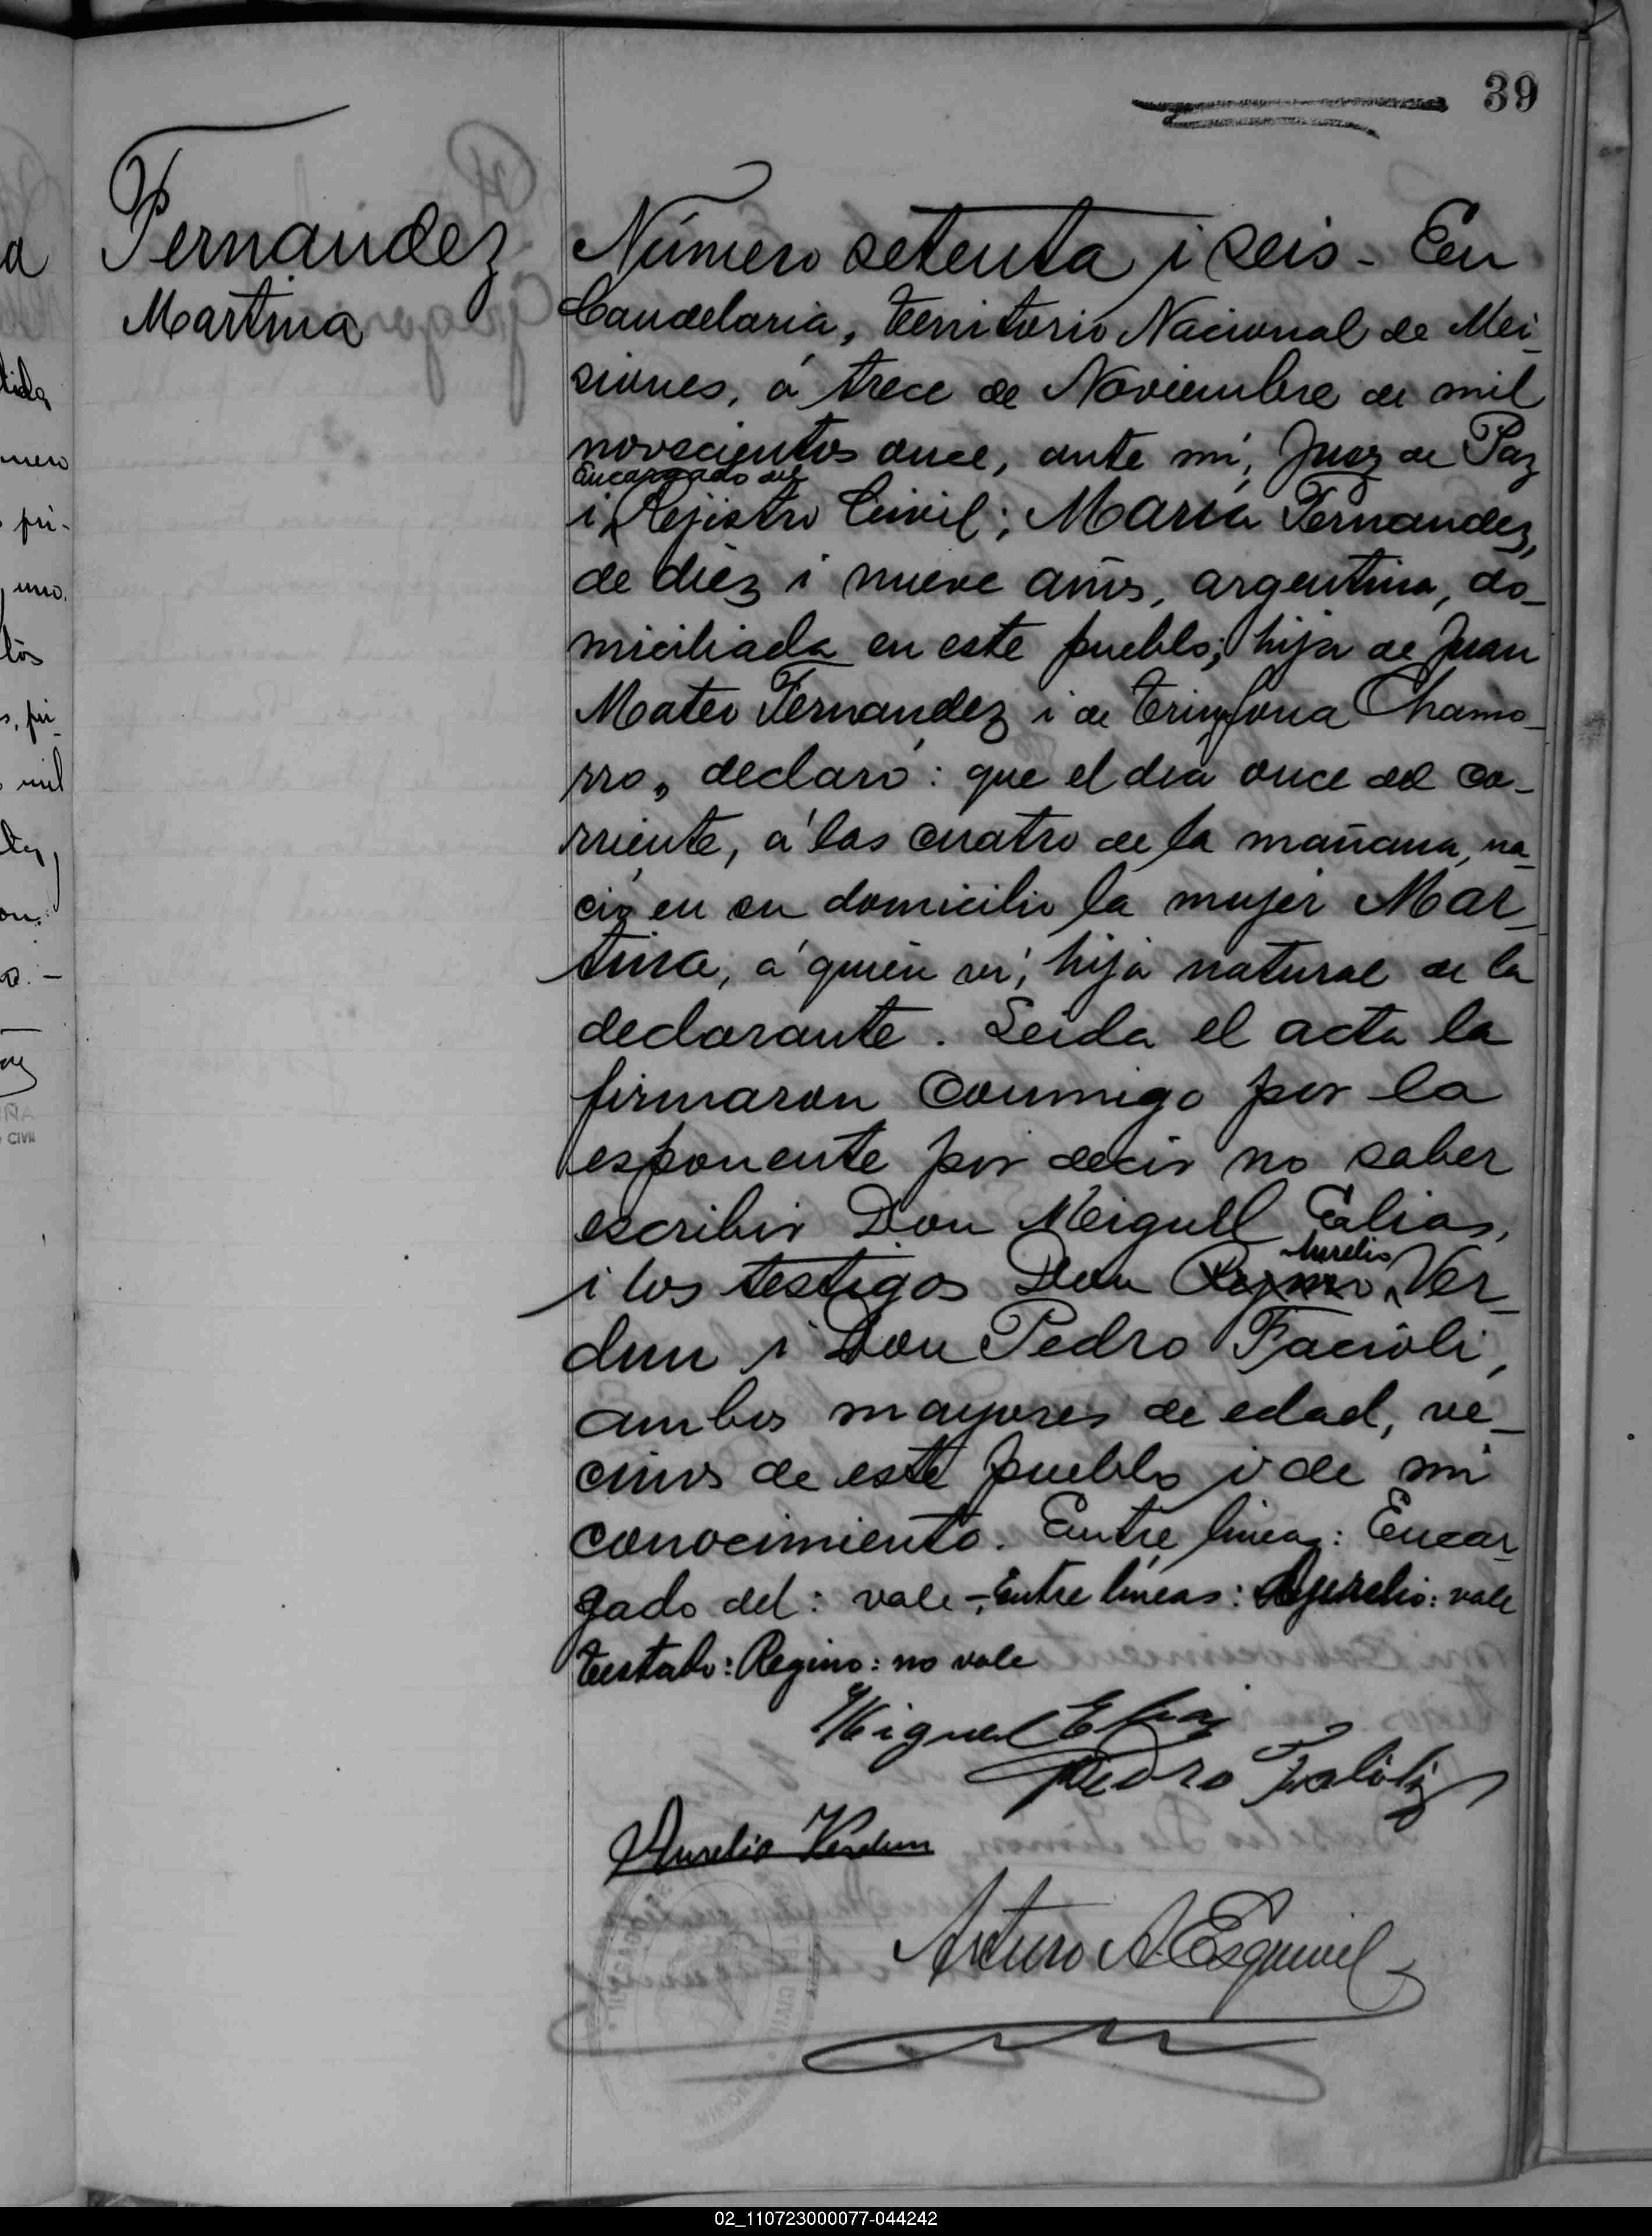 39
Fernandez
Martina
Número setenta i seis - En
Candelaria, territorio Nacional de Mi-
siones, á trece de Noviembre de mil
novecientos once, ante mí, Juez de Paz
encargado del
i Rejistro Civil; María Fernandez,
de diez i nueve años, argentina, do-
miciliada en este pueblo; hija de Juan
Mateo Fernandez i de Chamo-
rro, declaró: que el dia once del co-
rriente, á las cuatro de la mañana, na-
ció en su domicilio la mujer Mar-
tina, á quien ví, hija natural de la
declarante. Leida el acta la
firmaron conmigo por la
esponente por decir no saber
escribir Don Miguel Elias,
Aurelio
i los testigos Don Regino Ver-
dun i Don Pedro Facioli,
ambos mayores de edad, ve-
cinos de este pueblo i de mi
conocimiento. Entre lineas: Encar-
gado del: vale-; Entre lineas: Aurelio: vale
testado: Regino: no vale
Miguel Elias
Pedro
Aurelio Verdun
Arturo A. Esquivel
02_110723000077-044242